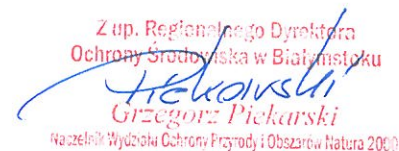 Z up. Regionalnego Dyrektora
Ochrony Środowiska w Białymstoku
Piekarski
Grzegorz Piekarski
Naczelnik Wydziału Ochrony Przyrody i Obszarów Natura 2000